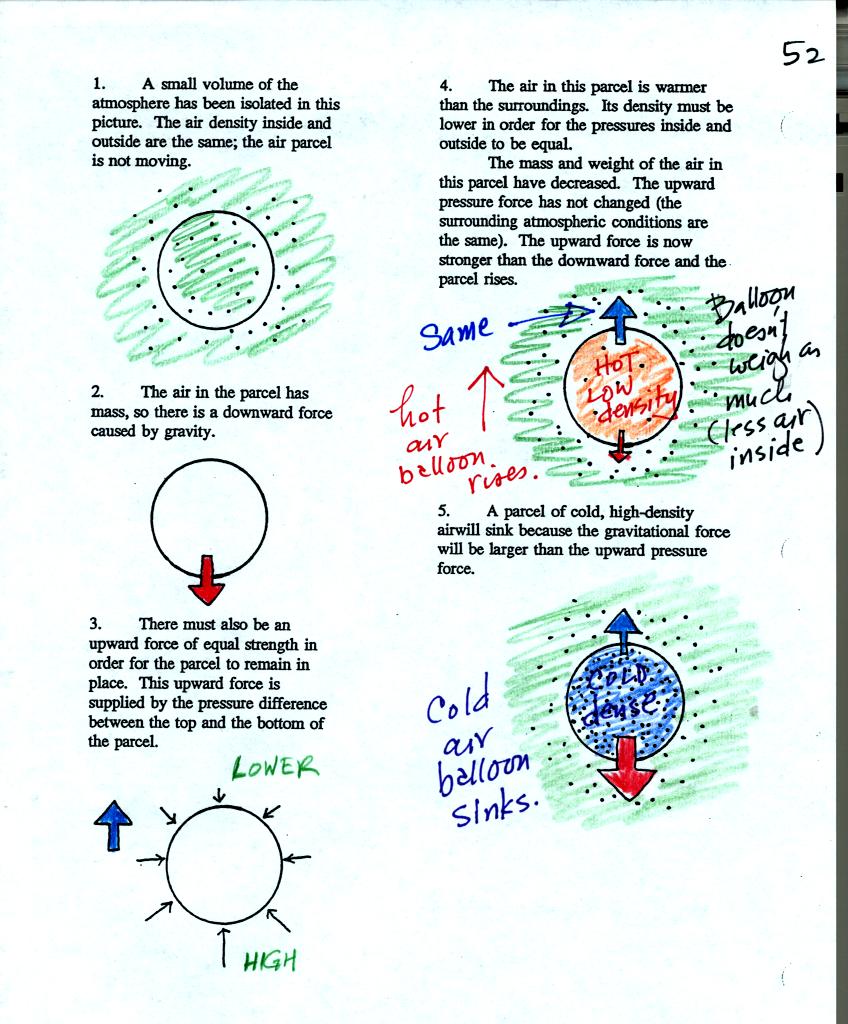 52
1. A small volume of the
atmosphere has been isolated in this
picture. The air density inside and
outside are the same; the air parcel
is not moving.
2. The air in the parcel has
mass, so there is a downward force
caused by gravity.
3. There must also be an
upward force of equal strength in
order for the parcel to remain in
place. This upward force is
supplied by the pressure difference
between the top and the bottom of
the parcel.
LOWER
HIGH
4. The air in this parcel is warmer
than the surroundings. Its density must be
lower in order for the pressures inside and
outside to be equal.
The mass and weight of the air in
this parcel have decreased. The upward
pressure force has not changed (the
surrounding atmospheric conditions are
the same). The upward force is now
stronger than the downward force and the
parcel rises.
Same
hot
air
balloon
rises.
HOT
LOW
density
Balloon
doesn't
weigh as
much
(less air
inside)
5. A parcel of cold, high-density
airwill sink because the gravitational force
will be larger than the upward pressure
force.
Cold
air
balloon
sinks.
COLD
dense